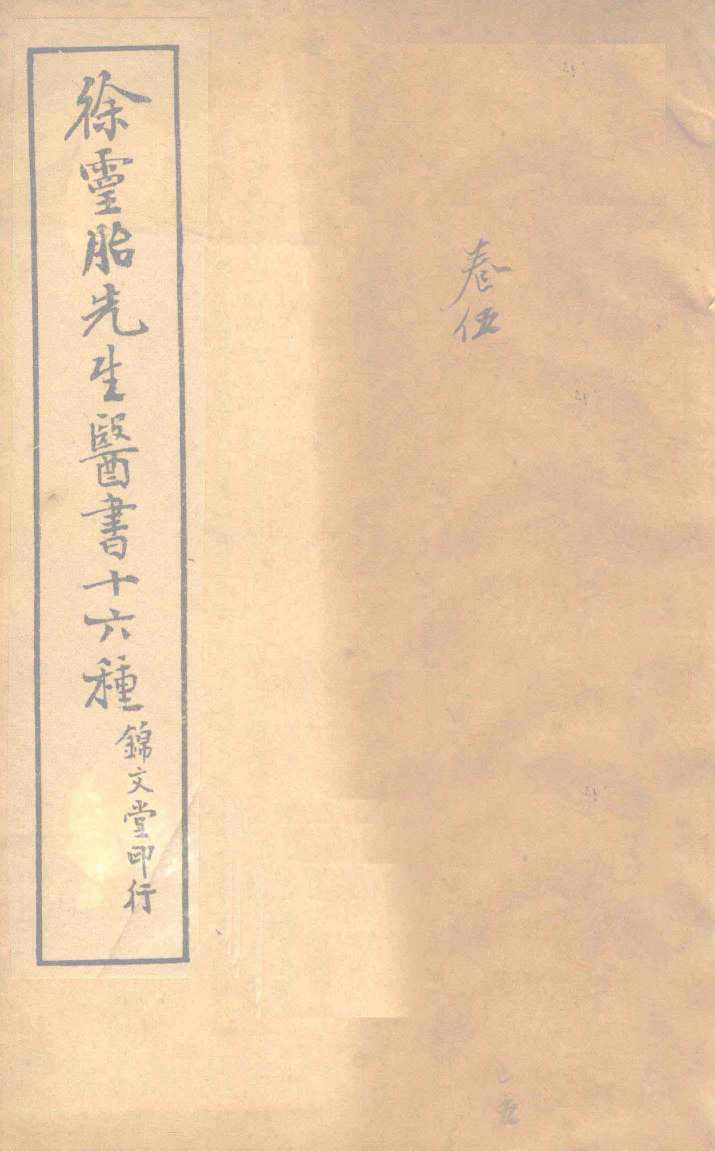 徐靈胎先生醫書十六種
錦文堂印行
卷伍
五